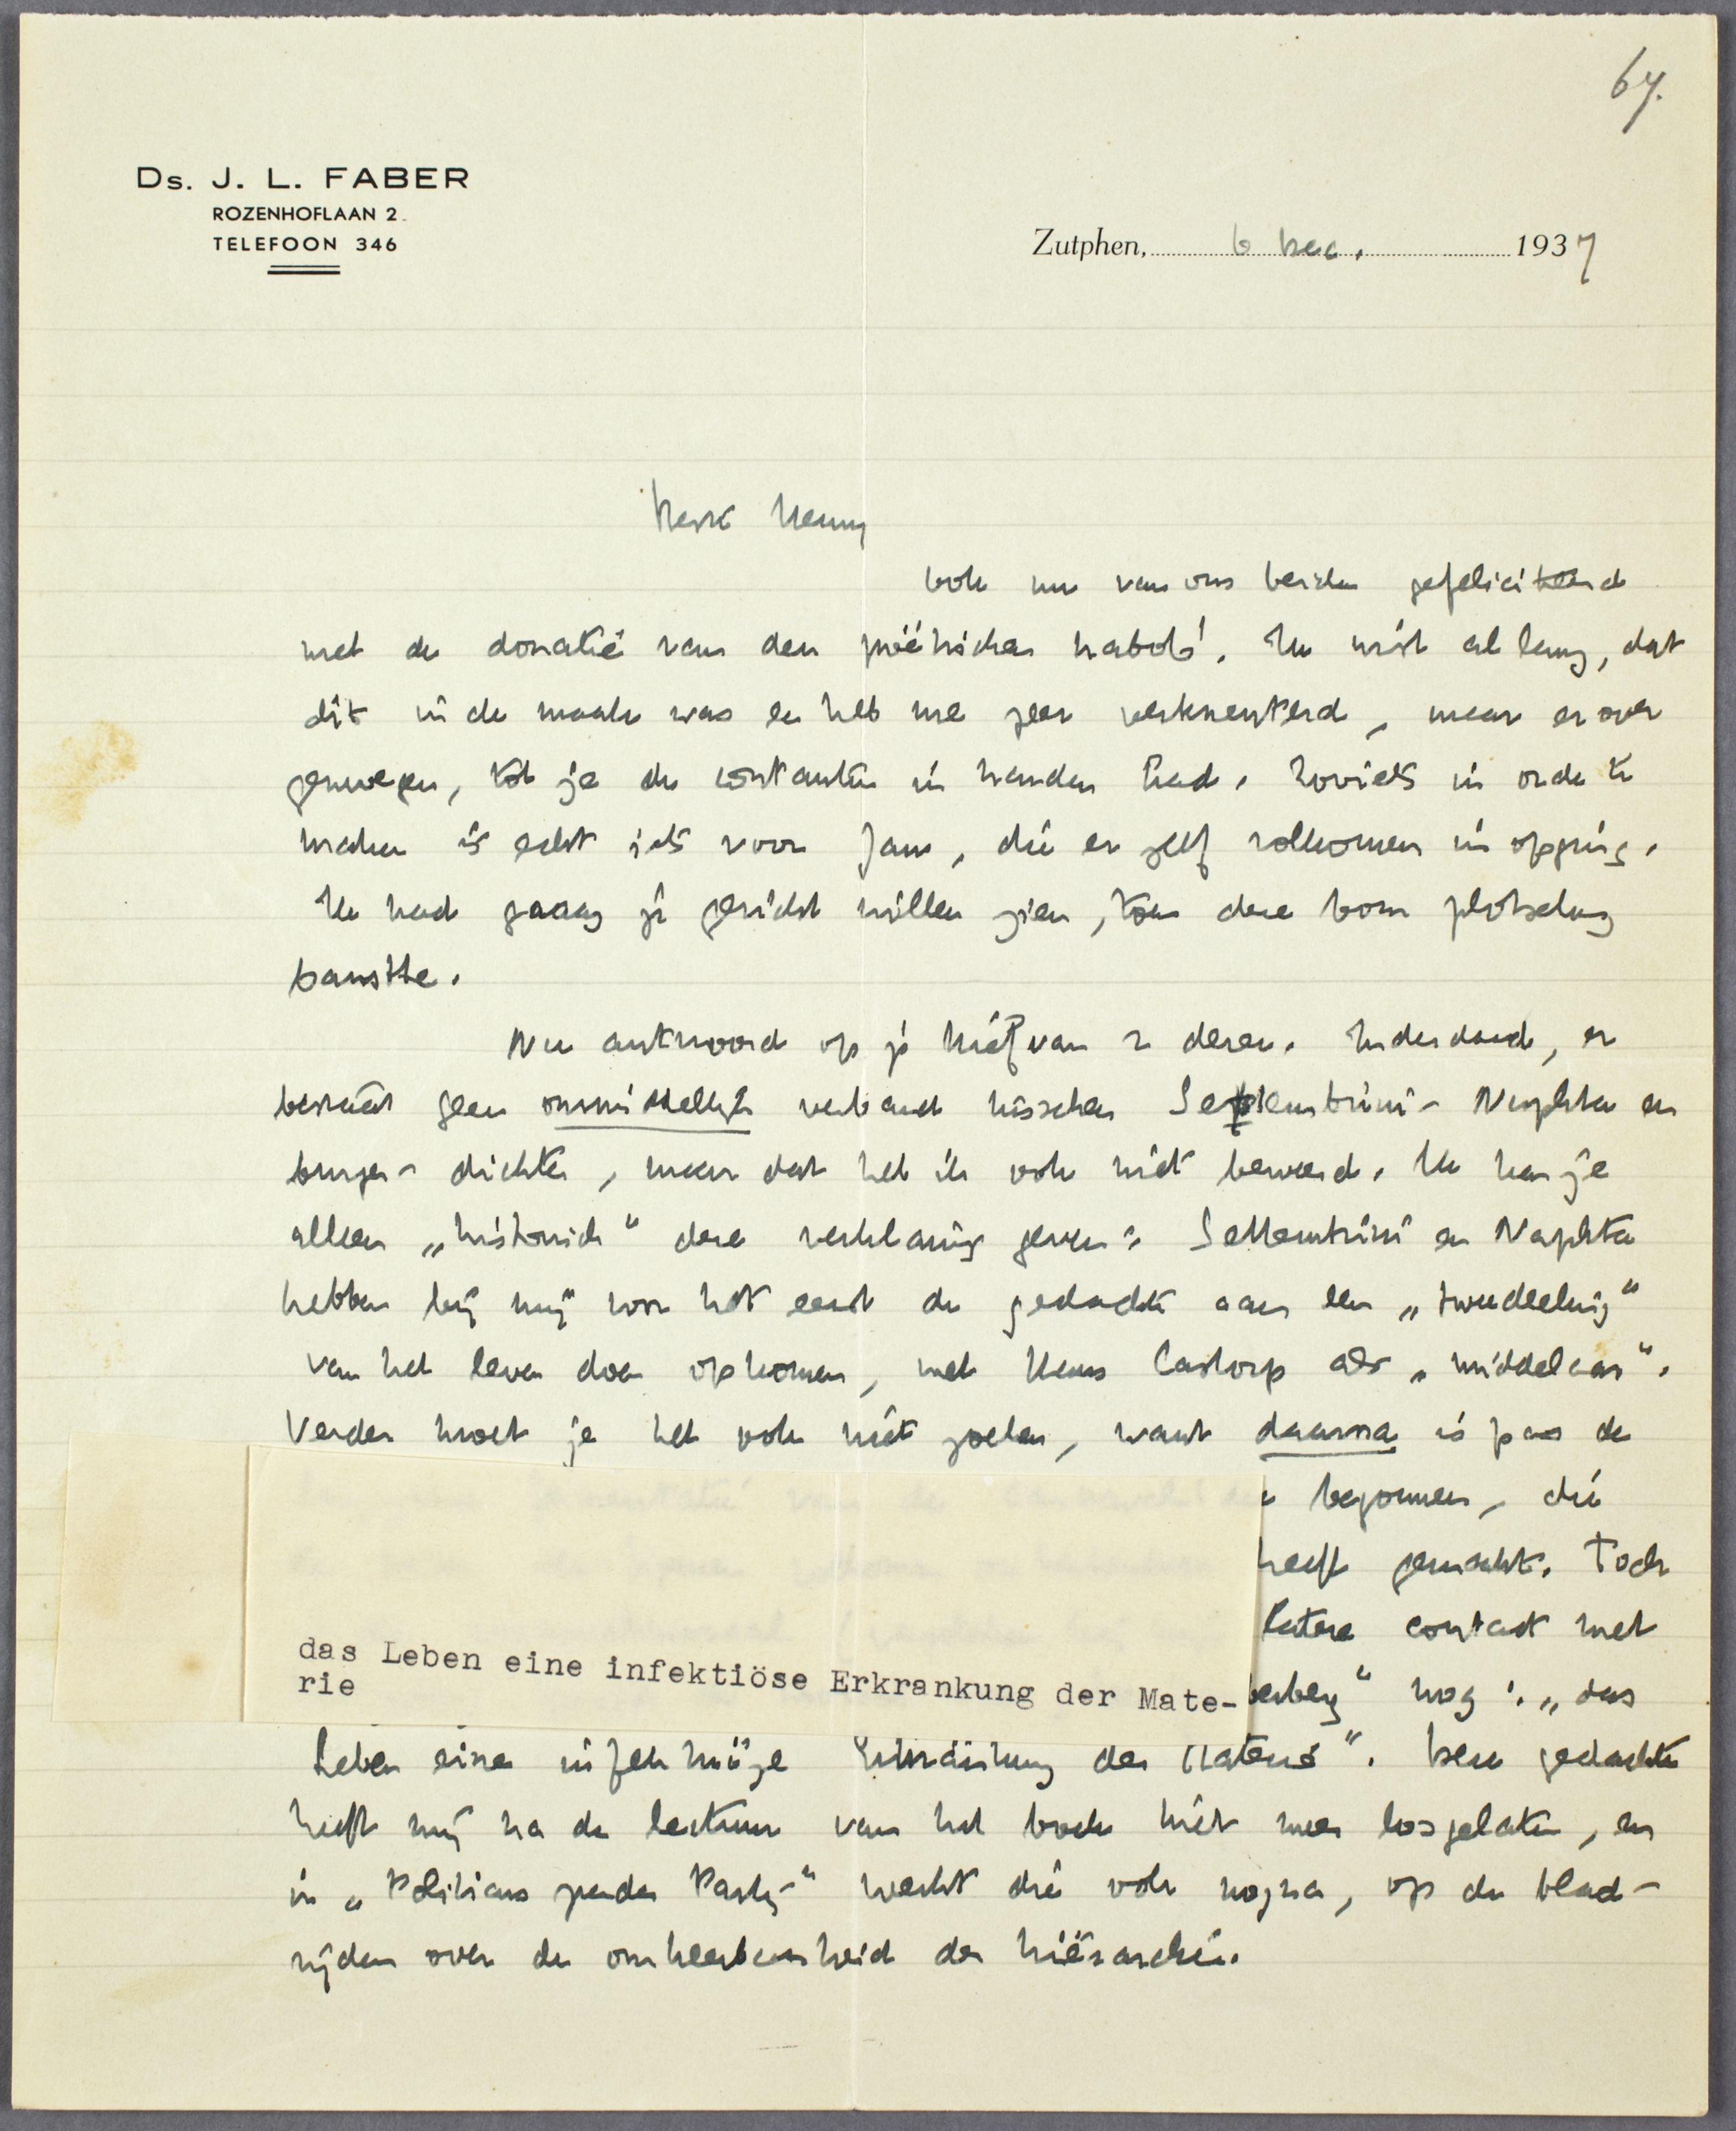 67.
Ds. J. L. FABER
ROZENHOFLAAN 2.
TELEFOON 346
Zutphen, 6 Dec. 1937
Beste Henny
Ook nu van ons beiden gefeliciteerd
met de donatie van den poëtischen nabob! Ik wist al lang, dat
dit in de maak was en heb me zeer verkneuterd, maar er over
gezwegen, tot je de contanten in handen had. Zooiets in orde te
maken is echt iets voor Jans, die er zelf volkomen in opging.
Ik had graag je gezicht willen zien, toen deze bom plotseling
barstte.
Nu antwoord op je brief van 2 dezer. Inderdaad, er
bestaat geen onmiddellijk verband tusschen Settembrini - Naphta en
burger - dichter, maar dat heb ik ook niet beweerd. Ik kan je
alleen „historisch" deze verklaring geven: Settembrini en Naphta
hebben bij mij voor het eerst de gedachte aan een „tweedeeling"
van het leven doen opkomen, met Hans Castorp als „middelaar".
Verder moet je het ook niet zoeken, want daarna is pas de
begonnen, die
heeft gemaakt. Toch
latere contact met
berberg" nog: „das
das Leben eine infektiöse Erkrankung der Mate-
rie
Leben eine infektiöze Erkrankung der Materie". Deze gedachte
heeft mij na de lectuur van het boek niet meer losgelaten, en
in „Politicus zonder Partij" werkt die ook nog na, op de blad-
zijden over de omkeerbaarheid der hiërarchie.